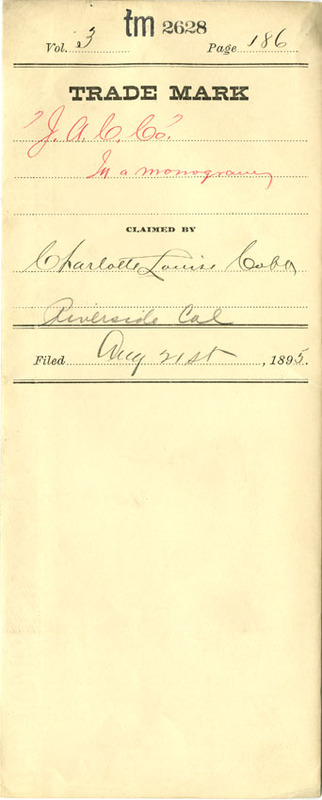 tm 2628
Vol. 3 Page 186
TRADE MARK
"J. A. C. Co."
In a monogram
CLAIMED BY
Charlotte Louise Cobb
Riverside Cal
Filed Aug 21st, 1895.